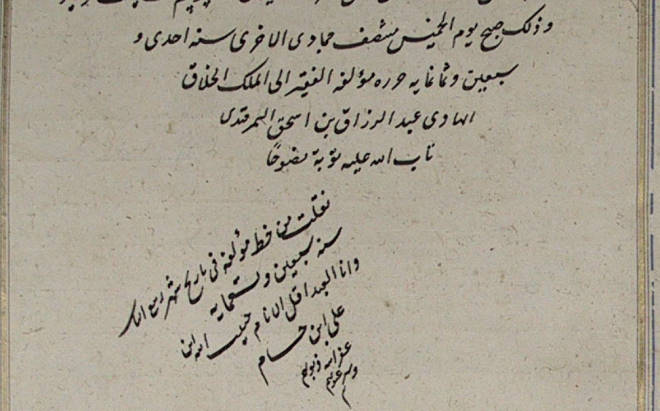 وذلك صبح يوم الخميس منتصف جمادى الاخرى سنه احدى و
سبعين وثمانمايه حرره مؤلفه الفقير الى الملك الخلاق
الهادى عبد الرزاق بن اسحق السمرقندى
تاب الله عليه توبة نصوحا
نقلت من خط مؤلفه فى تاريخ شهر ربيع
سنه سبعين وتسعمايه
وانا العبد اقل الانام حبيب الله ابن
على ابن حسام
غفر الله ذنوبهم
وستر عيوبهم